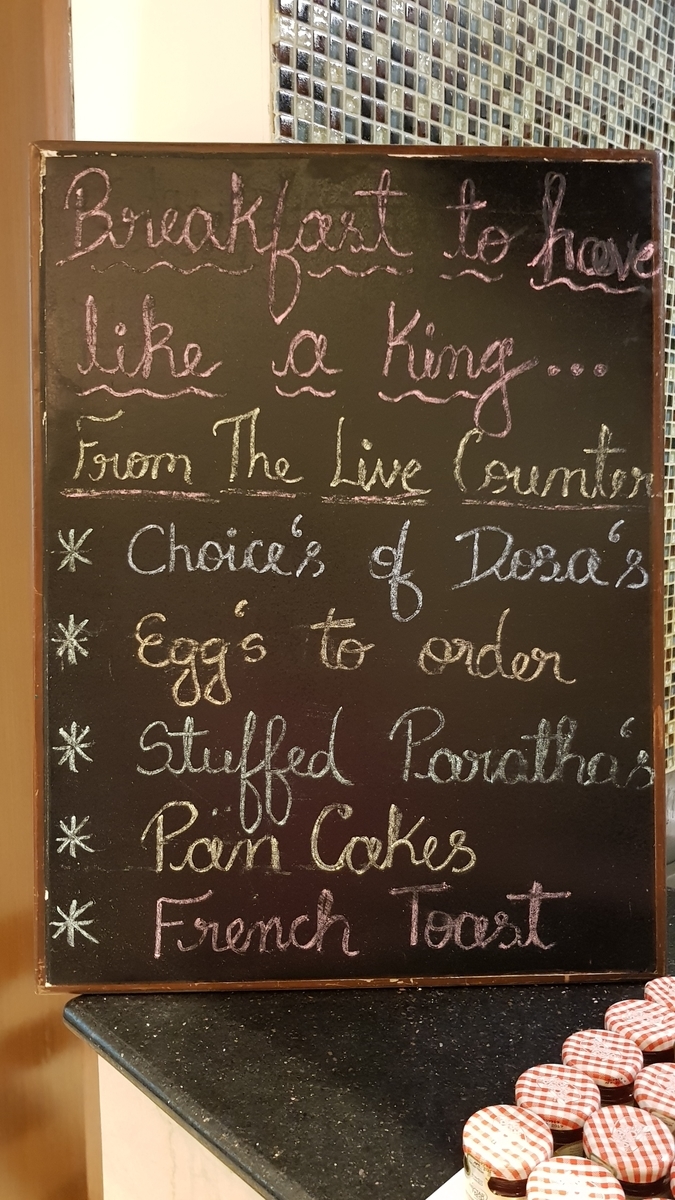 Breakfast to have
like a King...
From The Live Counter
* Choice's of Dosa's
* Egg's to order
* Stuffed Paratha's
* Pan Cakes
* French Toast